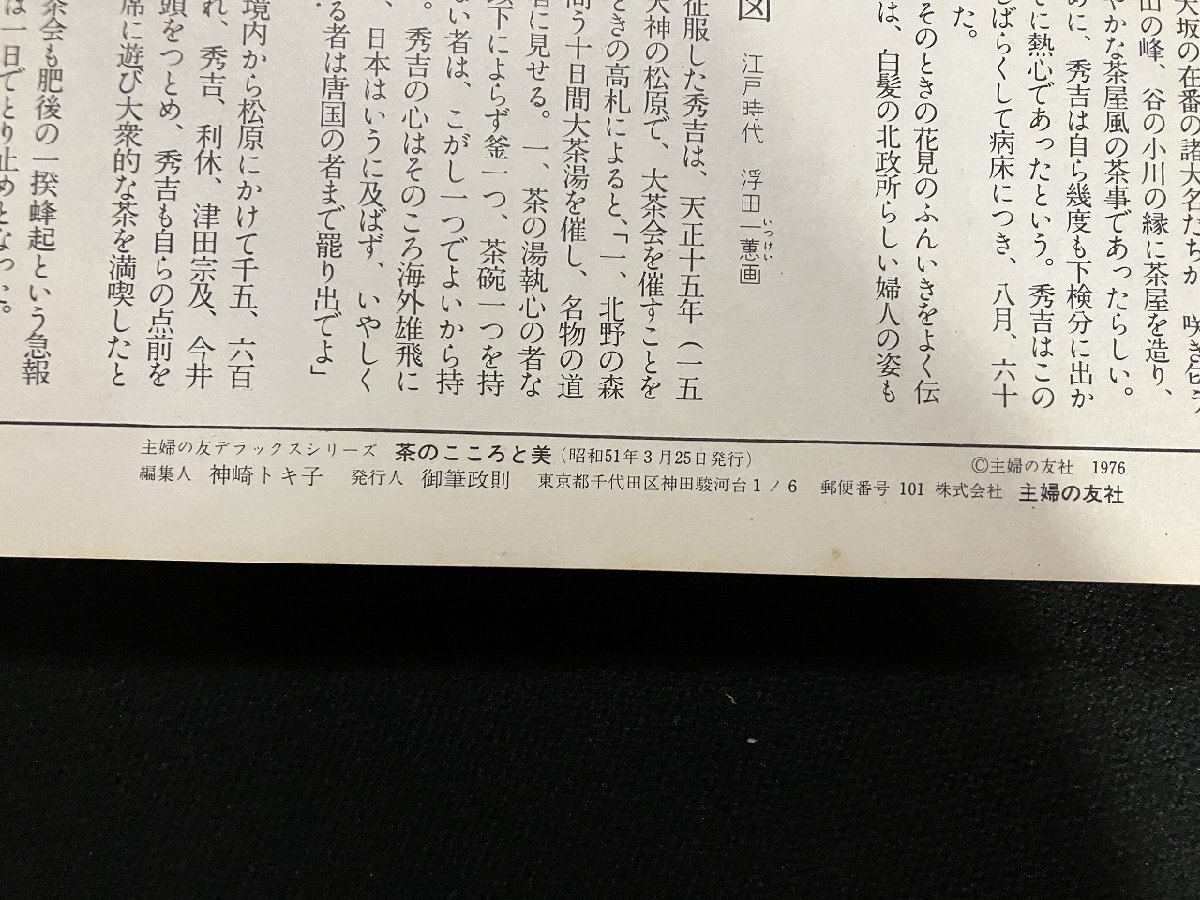 大坂の在番の諸大名たちが
山の峰、谷の小川の縁に茶屋を造り、
やかな茶屋風の茶事であったらしい。
めに、秀吉は自ら幾度も下検分に出か
に熱心であったという。秀吉はこの
しばらくして病床につき、八月、六十
た。
そのときの花見のふんいきをよく伝
は、白髪の北政所らしい婦人の姿も
図 江戸時代 浮田一蕙画
いっけい
征服した秀吉は、天正十五年（一五
天神の松原で、大茶会を催すことを
ときの高札によると、「一、北野の森
間う十日間大茶湯を催し、名物の道
者に見せる。一、茶の湯執心の者な
以下によらず釜一つ、茶碗一つを持
ない者は、こがし一つでよいから持
。秀吉の心はそのころ海外雄飛に
、日本はいうに及ばず、いやしく
る者は唐国の者まで罷り出でよ」
境内から松原にかけて千五、六百
れ、秀吉、利休、津田宗及、今井
頭をつとめ、秀吉も自らの点前を
席に遊び大衆的な茶を満喫したと
茶会も肥後の一揆蜂起という急報
は一日でとり止めとなった。
主婦の友デラックスシリーズ 茶のこころと美（昭和51年3月25日発行） ©主婦の友社 1976
編集人 神崎トキ子 発行人 御筆政則 東京都千代田区神田駿河台1ノ6 郵便番号 101 株式会社 主婦の友社